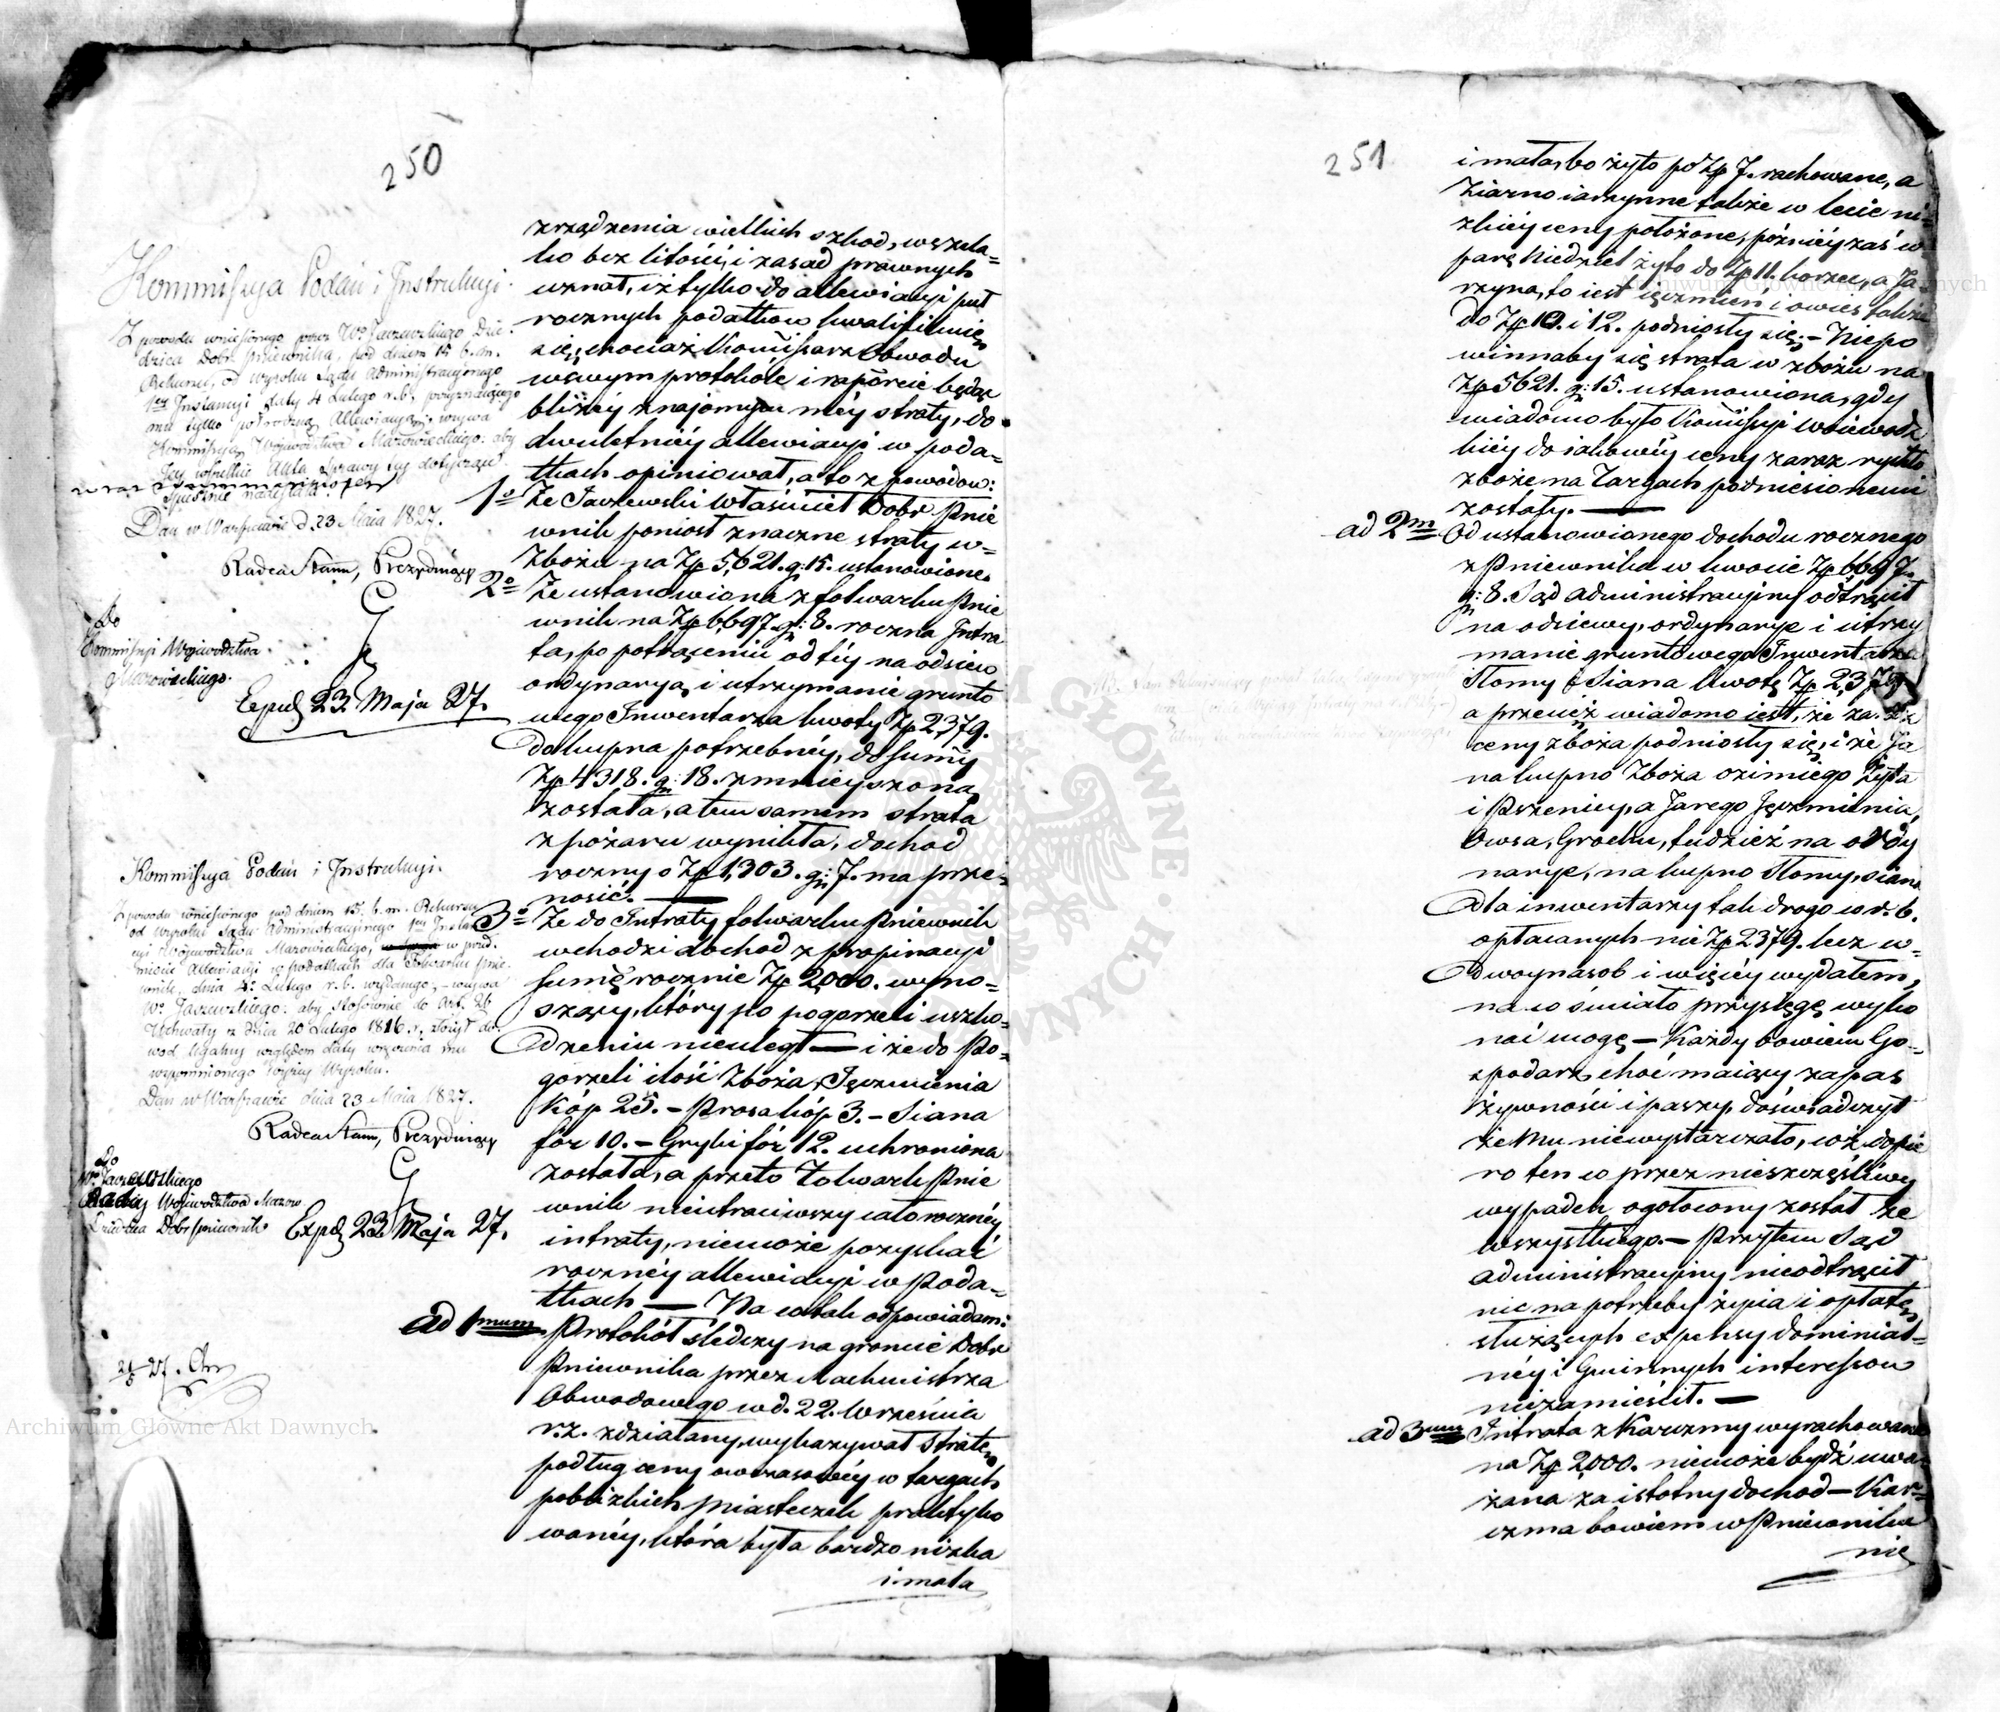 250
Kommissyja Podań i Instrukcyi.
Z powodu wniesionego przez Wo Jaczewskiego Dzie-
dzica Dobr Pniewnika, pod dniem 15 b. m.
Rekursu, od Wyroku Sądu Administracyjnego
1ey Instancyi daty 4 Lutego r. b. przyznaiącego
mu tylko półroczną Allewiacyą; wzywa
Kommissyą Województwa Mazowieckiego: aby
Jey wszelkie Akta Sprawy tey dotyczące
spiesznie nadesłała.
Dan w Warszawie d. 23 Maia 1827.
Radca Stanu, Prezyduiący
Do
Kommissyi Województwa
Mazowieckiego.
Exped 23 Maja 27.
Kommissyja Podań i Instrukcyi.
Z powodu wniesionego pod dniem 15. b. m. Rekursu
od Wyroku Sądu Administracyjnego 1ey Instan-
cyi Województwa Mazowieckiego, w przed-
miocie Allewiacyi w podatkach dla Folwarku Pnie-
wnik, dnia 4. Lutego r. b. wydanego, – wzywa
Wo Jaczewskiego: aby stosownie do Art. 26
Uchwały z dnia 20 Lutego 1816 r. złożył do-
wod legalny względem daty wręczenia mu
wspomnionego wyżey Wyroku.
Dan w Warszawie dnia 23 Maia 1827.
Radca Stanu, Prezyduiący
Do
Wo Jaczewskiego
Radcy Województwa Mazow
Dziedzica Dobr Pniewnik
Exped 23 Maja 27.
zrządzenia wielkich szkod, wszela-
ko bez litości, i zasad prawnych
uznał, iż tylko do allewiacyi puł
rocznych podatkow kwalifikuię
się, chociaż Kommissarz Obwodu
wswym protokóle i raporcie będąc
bliżéy znajomym méy straty, do
dwuletniéy allewiacyi w poda-
tkach opiniował, a to z powodow:
1o Że Jaczewski Właściciel Dobr Pnie
wnik poniosł znaczne straty w-
Zbożu na Zp 5,621. g: 15. ustanowione.
2o Że ustanowiona z folwarku Pnie
wnik na Zp 6697. g: 8. roczna Intra
ta, po potrąceniu od téy na odsiew
ordynaryą, i utrzymanie grunto
wego Inwentarza kwoty Zp 2,379.
do kupna potrzebnéy, do summy
Zp 4318. g: 18. zmnieyszoną
została, a tem samem strata
z pożaru wynikła, dochod
roczny o Zp 1,303. g: 7. ma prze-
nosić. —
3o Że do Intraty folwarku Pniewnik
wchodzi dochod z propinacyi
summę rocznie Zp 2,000. wyno-
szący, który po pogorzeli uszko-
dzeniu nieuległ — i że do Po-
gorzeli ilość Zboża, Jęczmienia
Kóp 25. – Prosa kóp 3. – Siana
fór 10. – Gryki fór 12. uchroniona
została, a przeto Folwark Pnie
wnik nieutraciwszy całoroczney
intraty, niemoże pozyskać
rocznéy allewiacyi w Poda-
tkach — Na co tak odpowiadam:
ad 1mum Protokół śledczy na gruncie Dobr
Pniewnika przez Rachmistrza
Obwodowego w d. 22. Września
r. z. zdziałany, wykazywał Stratę,
podług ceny owczasowéy w targach
poblizkich Miasteczek praktyko
wanéy, która była bardzo nizka
i mała
251
i mała, bo żyto po Zp 7. rachowane, a
Ziarno iarzynne także w lecie ni-
zkiéy ceny położone, późniéy zaś w
parę Niedziel żyto do Zp 11. korzec, a Ja-
rzyna, to iest ięczmień i owies także
do Zp 10. i 12. podniosły się; – Niepo
winnaby się strata w zbożu na
Zp 5621. g: 15. ustanowiona, gdy
wiadomo było Kommissyi Woiewodz
kiéy do iakowéy ceny zaraz rychło
zboże na Targach podniesionemi
zostały. —
ad 2m Od ustanowionego dochodu rocznego
z Pniewnika w kwocie Zp 6697.
g: 8. Sąd Administracyjny odtrącił
na odsiewy, ordynaryje i utrzy
manie gruntowego Inwentarza
Słomy i Siana kwotę Zp 2,379.
a przecież wiadomo iest, że zaraz
ceny zboża podniosły się, i że Ja
na kupno Zboża oziмiego Żyta
i Pszenicy, a Jarego Jęczmienia,
Owsa, Grochu, tudzież na ordy
naryje, na kupno Słomy, siana
dla inwentarzy tak drogo w r. b.
opłacanych nie Zp 2379. lecz w-
dwoynasob i więcéy wydałem,
na co śmiało przysięgę wyko
nać mogę – Każdy bowiem Go-
spodarz, choć maiący zapas
żywności i paszy, doświadczył
że Mu niewystarczało, coż dopie
ro ten co przez nieszczęśliwy
wypadek ogołocony został ze
wszystkiego. – Przytem Sąd
administracyjny nieodtrącił
nic na potrzeby życia i opłatę
służących expensy dominial-
néy i Gminnych interessow
niezamieścił. —
ad 3um Intrata z Karczmy wyrachowana
na Zp 2,000. niemoże bydź uwa-
żana za istotny dochod – Kar-
czma bowiem w Pniewniku
nie